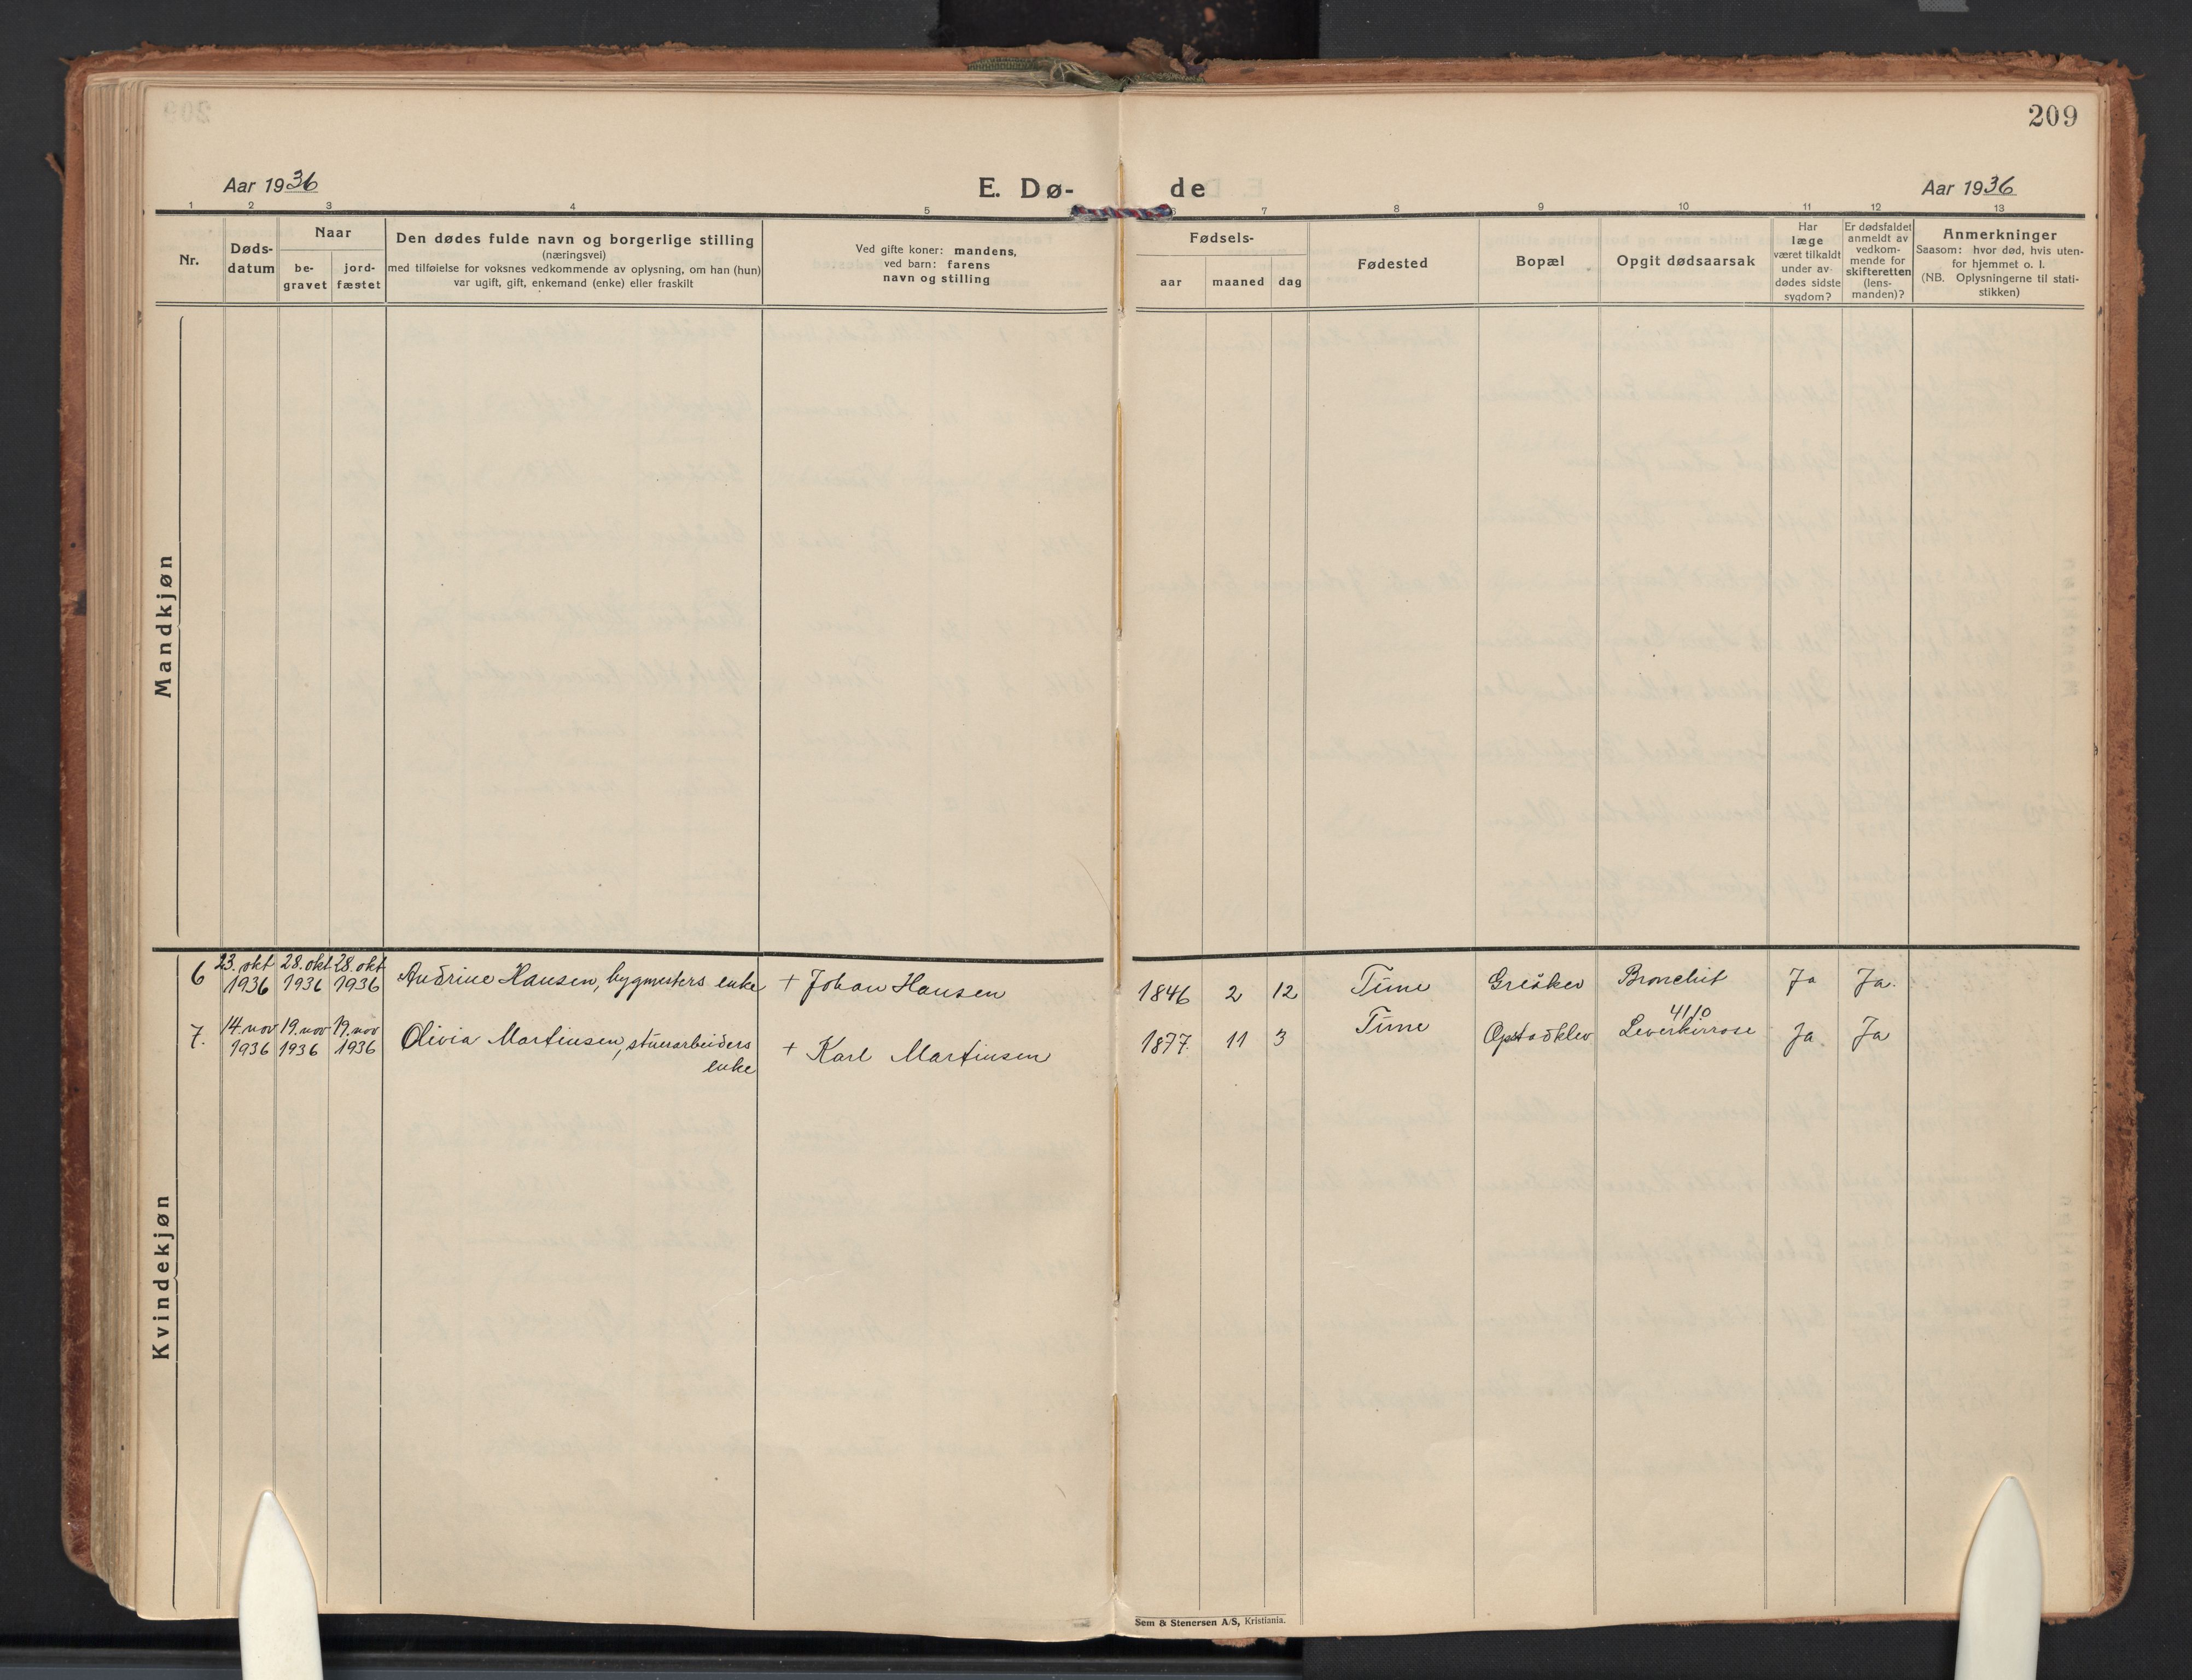 209
Aar 1936
E. Dø-
de
Aar 1936
1 2 3 4 5 6 7 8 9 10 11 12 13
Nr.
Døds-
datum
Naar
be-
gravet
jord-
fæstet
Den dødes fulde navn og borgerlige stilling
(næringsvei)
med tilføielse for voksnes vedkommende av oplysning, om han (hun)
var ugift, gift, enkemand (enke) eller fraskilt
Ved gifte koner: mandens,
ved barn: farens
navn og stilling
Fødsels-
aar maaned dag
Fødested
Bopæl
Opgit dødsaarsak
Har
læge
været tilkaldt
under av-
dødes sidste
sygdom?
Er dødsfaldet
anmeldt av
vedkom-
mende for
skifteretten
(lens-
manden)?
Anmerkninger
Saasom: hvor død, hvis uten-
for hjemmet o. l.
(NB. Oplysningerne til stati-
stikken)
Mandkjøn
Kvindekjøn
6 23. okt 1936 28. okt 1936 28. okt 1936 Andrine Hansen, bygmesters enke + Johan Hansen 1846 2 12 Tune Greåker Bronchit Ja Ja.
7. 14. nov 1936 19. nov 1936 19. nov 1936 Olivia Martinsen, stuerarbeiders + Karl Martinsen 1877. 11 3 Tune Opstadklev Leverkirrose Ja. Ja
enke
Sem & Stenersen A/S, Kristiania.